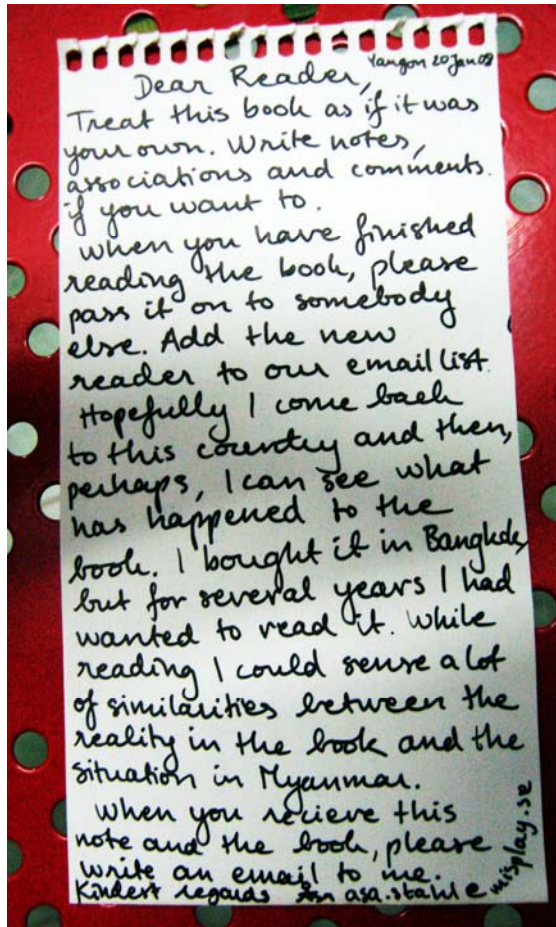 Yangon 20 Jan 08
Dear Reader,
Treat this book as if it was
your own. Write notes,
associations and comments.
if you want to.
When you have finished
reading the book, please
pass it on to somebody
else. Add the new
reader to our email list.
Hopefully I come back
to this country and then,
perhaps, I can see what
has happened to the
book. I bought it in Bangkok,
but for several years I had
wanted to read it. While
reading I could sense a lot
of similarities between the
reality in the book and the
situation in Myanmar.
When you recieve this
note and the book, please
write an email to me.
Kindest regards asa.stahl@misplay.se